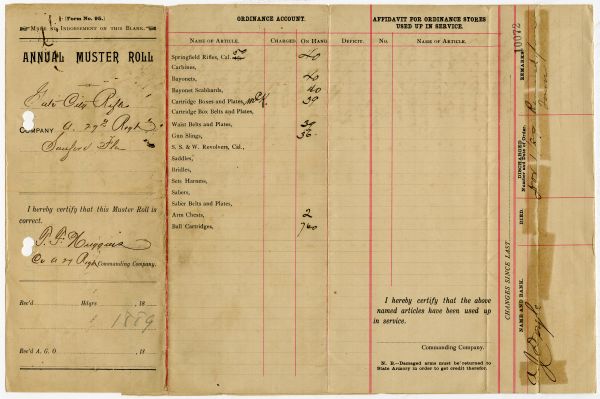 (Form No. 95.)
Make no Indorsement on this Blank.
ANNUAL MUSTER ROLL
Gate City Rifles
COMPANY A. 27th Regt
Sanford Fla
I hereby certify that this Muster Roll is
correct.
Co A 27 Regt Commanding Company.
Rec'd Hdqrs. 18
1889
Rec'd A. G. O. 18
ORDINANCE ACCOUNT.
Name of Article. Charged. On Hand. Deficit.
Springfield Rifles, Cal. 50 40
Carbines,
Bayonets, 40
Bayonet Scabbards, 40
Cartridge Boxes and Plates, 39
Cartridge Box Belts and Plates,
Waist Belts and Plates, 39
Gun Slings, 36
S. S. & W. Revolvers, Cal.,
Saddles,
Bridles,
Sets Harness,
Sabers,
Saber Belts and Plates,
Arm Chests, 2
Ball Cartridges, 740
AFFIDAVIT FOR ORDINANCE STORES
USED UP IN SERVICE.
No. Name of Article.
I hereby certify that the above
named articles have been used up
in service.
Commanding Company.
N. B.—Damaged arms must be returned to
State Armory in order to get credit therefor.
10072
CHANGES SINCE LAST
NAME AND RANK.
DIED.
DISCHARGED
Number and Date of Order.
REMARKS